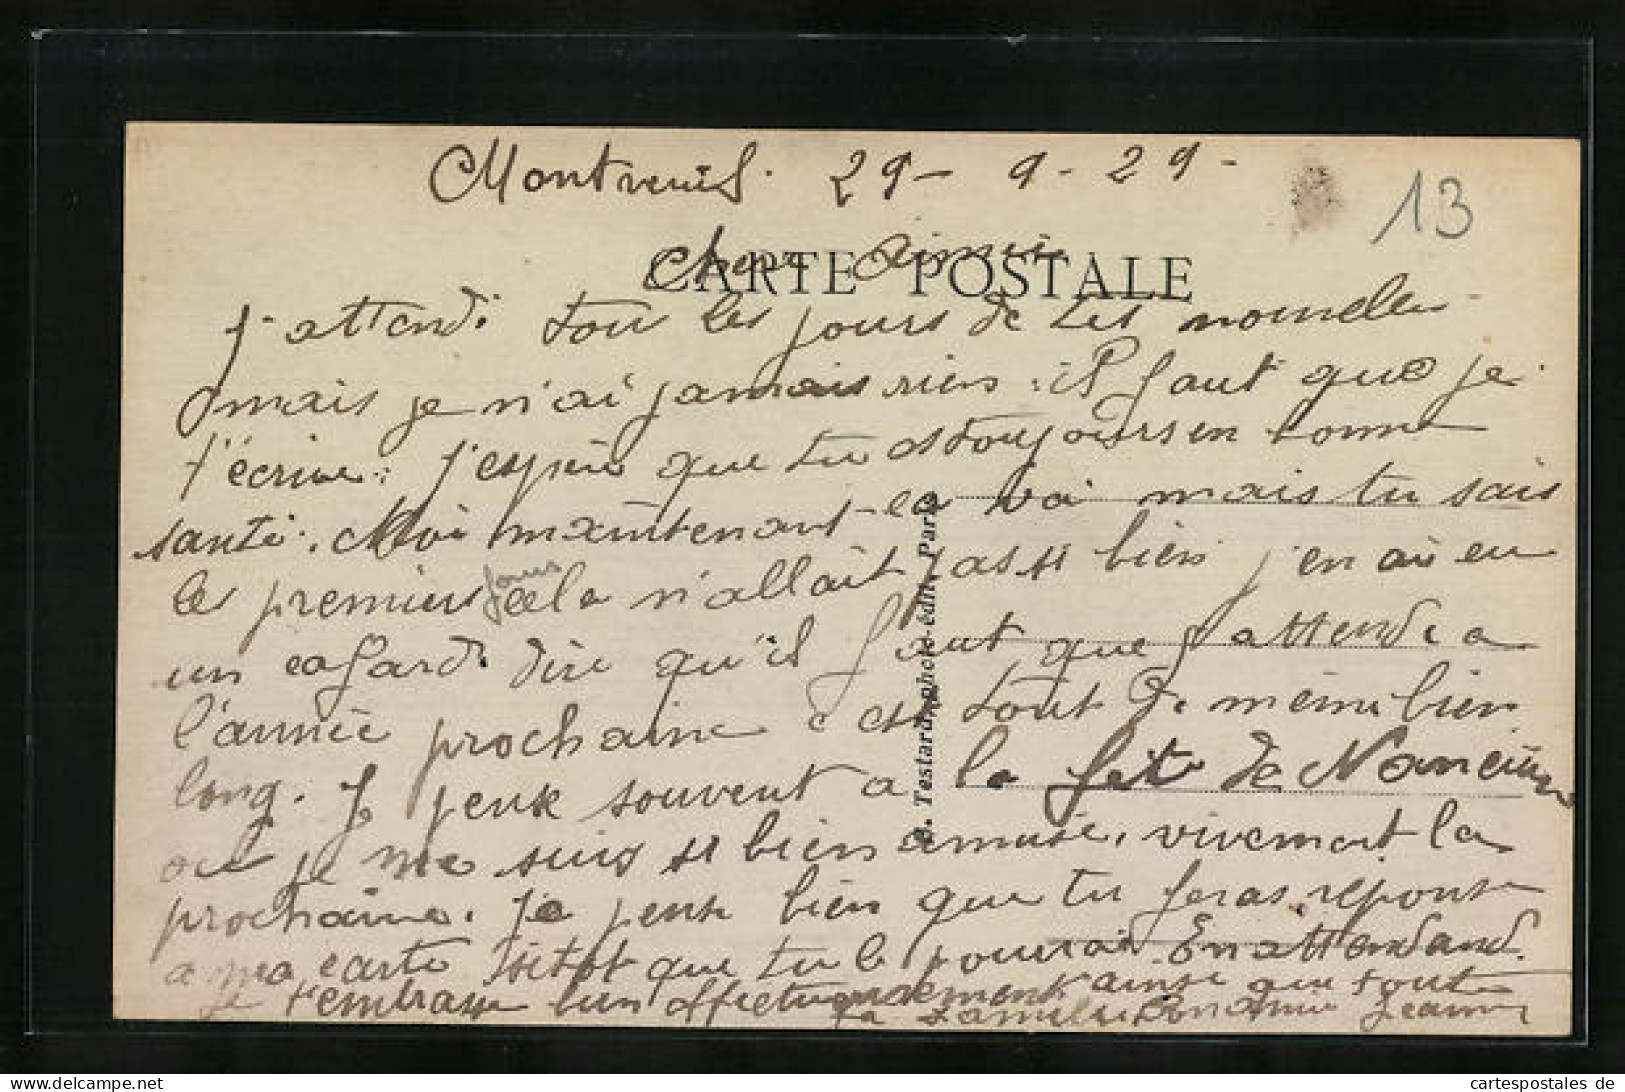 Montreuil. 29 - 9 - 29 -
13
CARTE POSTALE
Cher Aimée
j'attendi tou les jours de tes nouvelles
mais je n'ai jamais rien : il faut que je
t'écrive : j'espère que tu es toujours en bonne
santé. Moi maintenant ça va mais tu sais
les premiers jours cela n'allait pas si bien j'en ai eu
un cafard. dire qu'il faut que j'attende a
l'année prochaine c'est tout de même bien
long. Je pense souvent a la fête de
où je me suis si bien amusé, vivement la
prochaine. Je pense bien que tu feras réponse
a ma carte sitot que tu le pourrai. En attendand
je t'embrasse bien affectueusement ainsi que toute
ta famille Bon Amie Jeanne
. Testard, photo-édit., Paris
cartespostales de